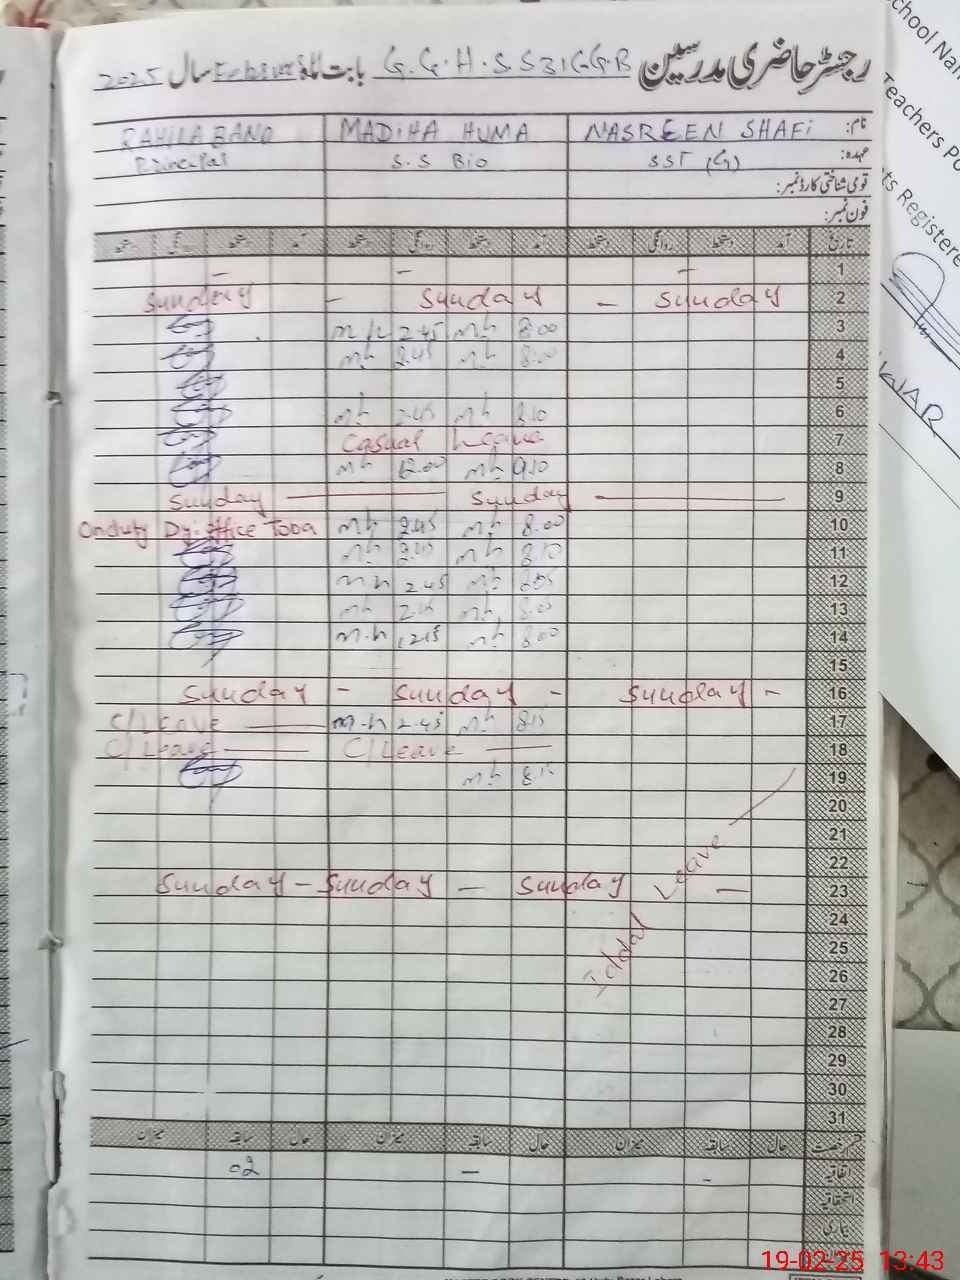 رجسٹر حاضری مدرسین G.G.H.S.S 31 GGB بابت ماہ سال 2025
نام: NASREEN SHAFI MADIHA HUMA RAHILA BANO
عہدہ: SST (G) S.S Bio Principal
قومی شناختی کارڈ نمبر:
فون نمبر:
تاریخ آمد دستخط روانگی دستخط آمد دستخط روانگی دستخط آمد دستخط روانگی دستخط
1 - - -
2 Sunday - Sunday - Sunday
3 8.00 mh 2.45 mh
4 8.00 mh 2.45 mh
5
6 8.10 mh 2.45 mh
7 Casual Leave
8 9.10 mh 12.00 mh
9 Sunday Sunday
10 8.00 mh 2.45 mh Onduty Dy: office Toba
11 8.10 mh 2.45 mh
12 8.05 mh 2.45 mh
13 8.00 mh 2.45 mh
14 8.00 mh 12.15 m.h
15
16 Sunday - Sunday - Sunday -
17 8.15 mh 2.45 m.h C/Leave
18 C/Leave C/Leave
19 8.10 mh
20
21
22
23 Sunday - Sunday - Sunday -
Iddat Leave
24
25
26
27
28
29
30
31
قسم رخصت حال سابقہ میزان حال سابقہ میزان حال سابقہ میزان
اتفاقیہ - - 02
استحقاقیہ
بیماری
chool Nam
Teachers Po
ts Registere
19-02-25 13:43